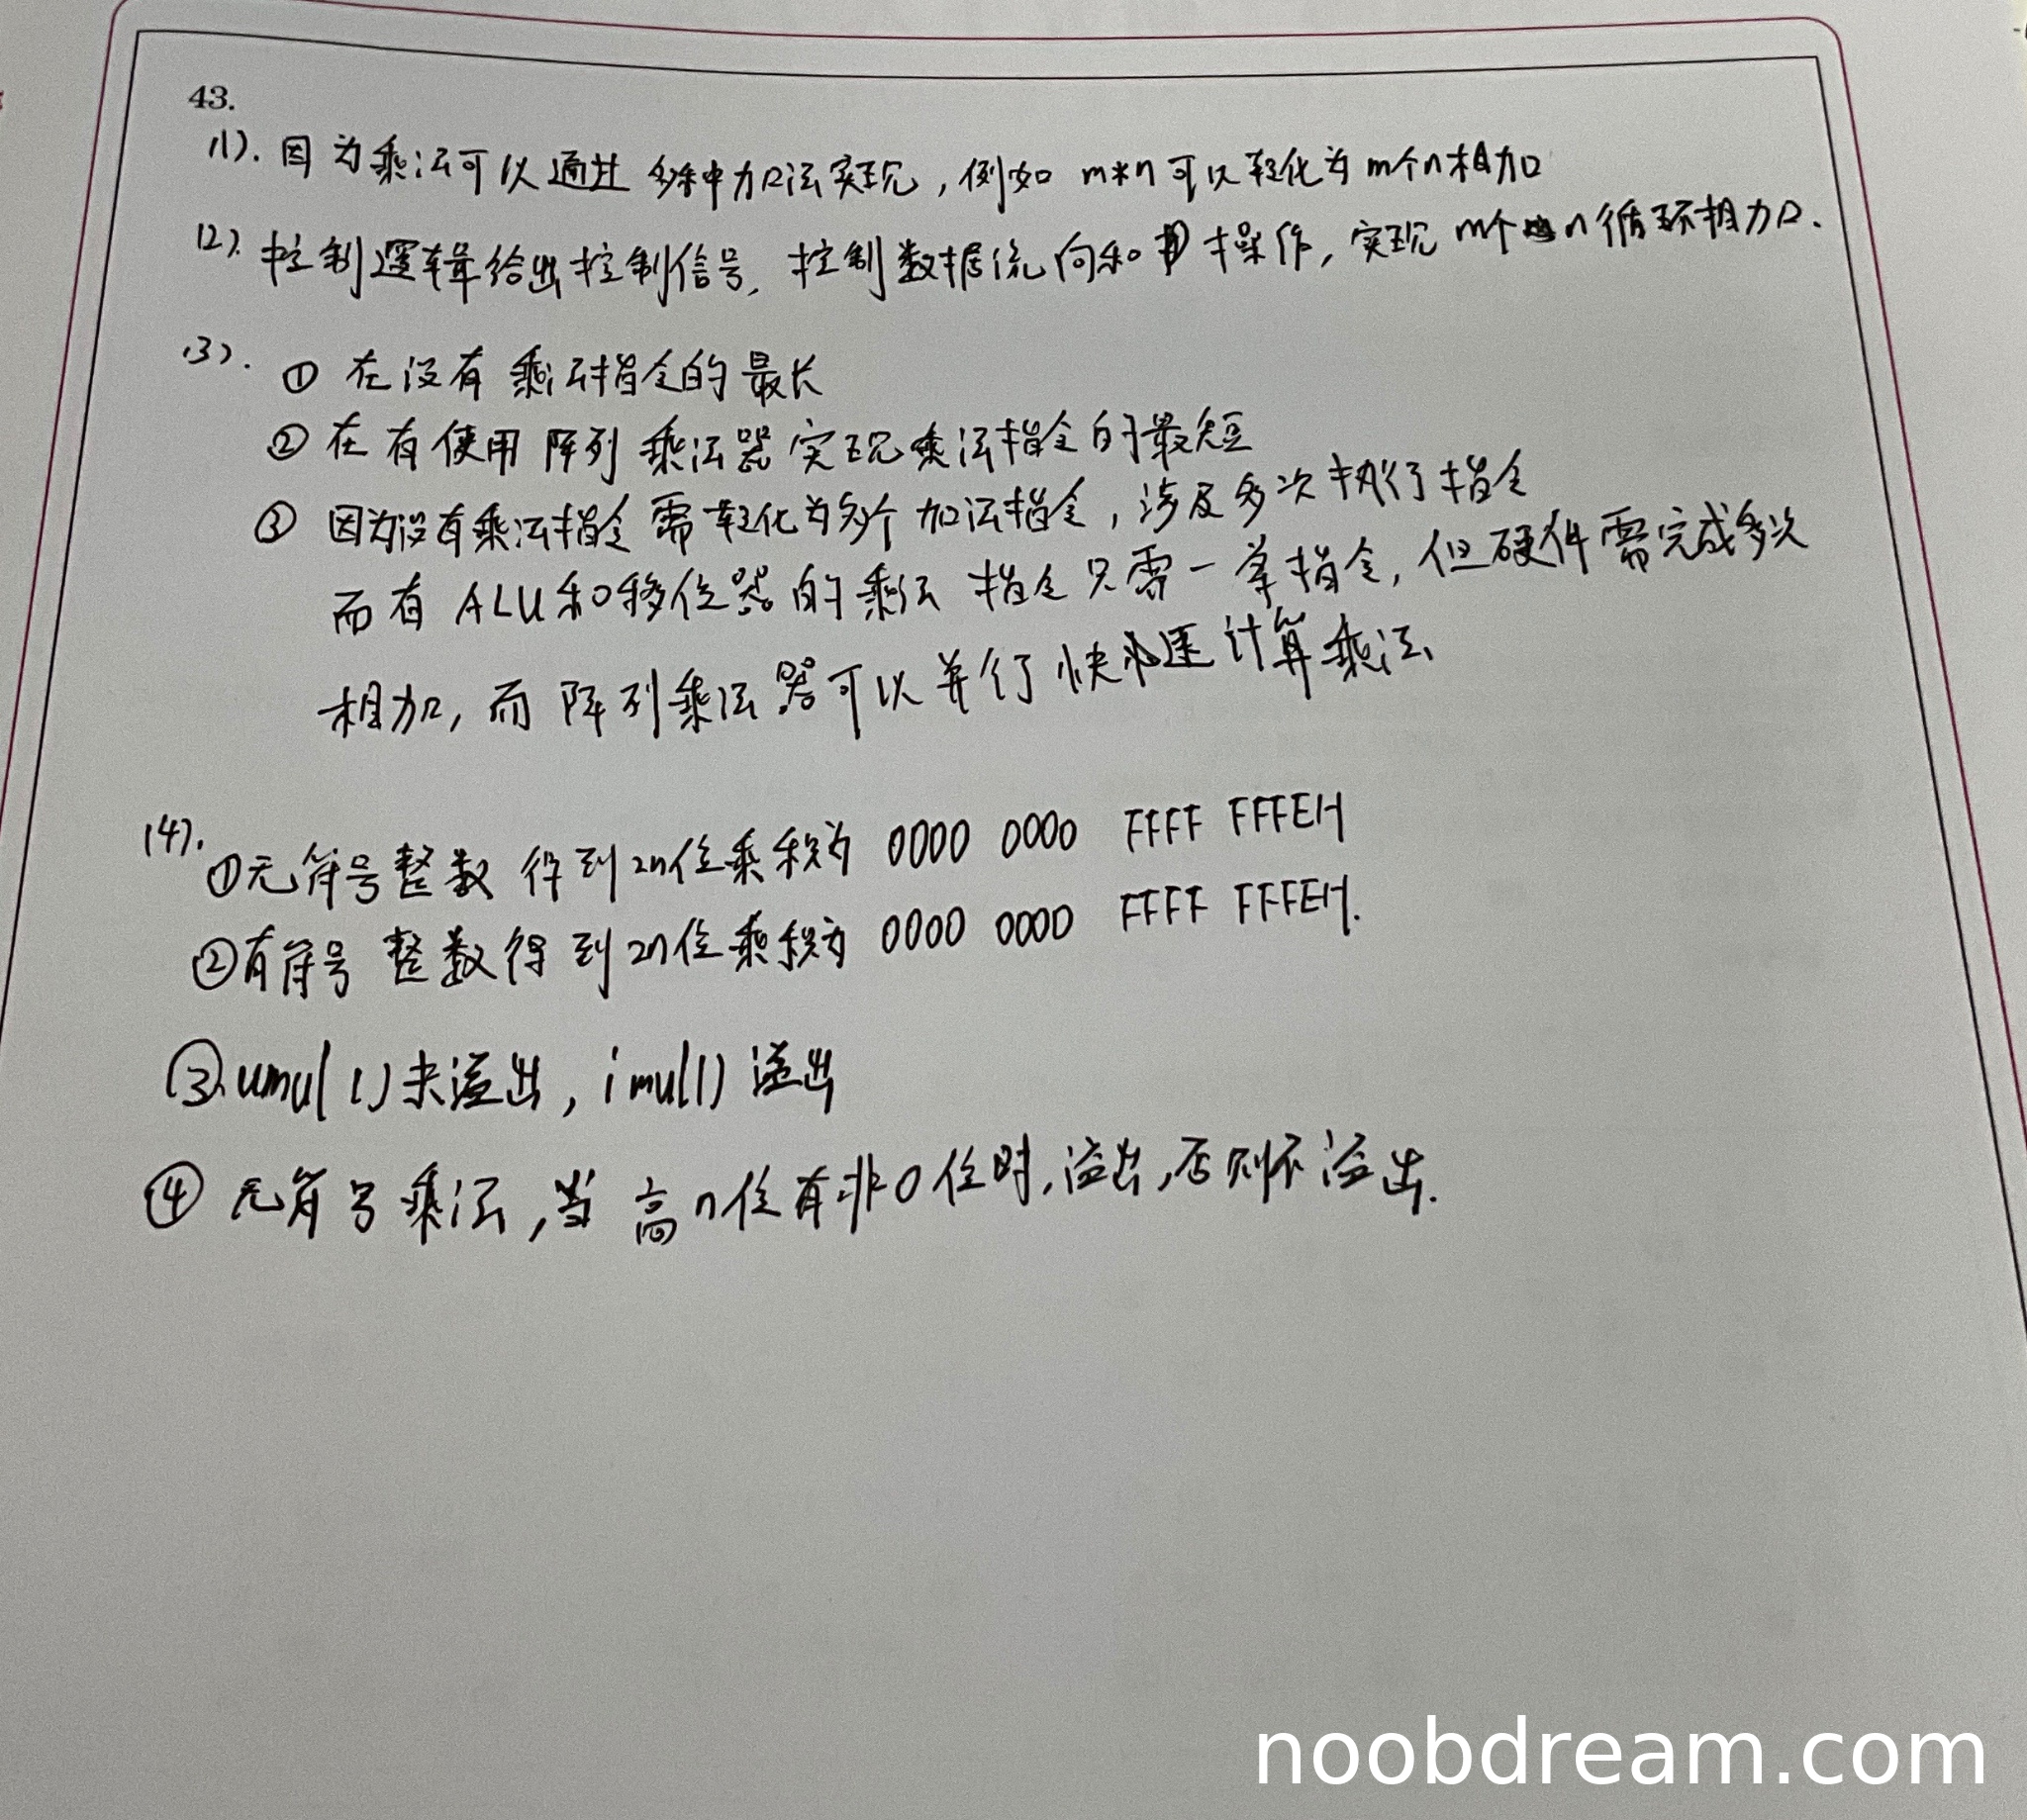 43.
(1). 因为乘法可以通过多种加法实现，例如 m*n 可以转化为 m个n相加
(2). 控制逻辑给出控制信号，控制数据流向和操作，实现 m个n循环相加.
(3). ① 在没有乘法指令的最长
② 在有使用阵列乘法器实现乘法指令的最短
③ 因为没有乘法指令需转化为多个加法指令，涉及多次执行指令
而有 ALU和移位器的乘法指令只需一单指令，但硬件需完成多次
相加，而阵列乘法器可以并行快速计算乘法
(4). ①无符号整数得到2n位乘积为 0000 0000 FFFF FFFEH
②有符号整数得到2n位乘积为 0000 0000 FFFF FFFEH.
③umul()未溢出，imul()溢出
④ 无符号乘法，当高n位有非0位时，溢出，否则不溢出.
noobdream.com